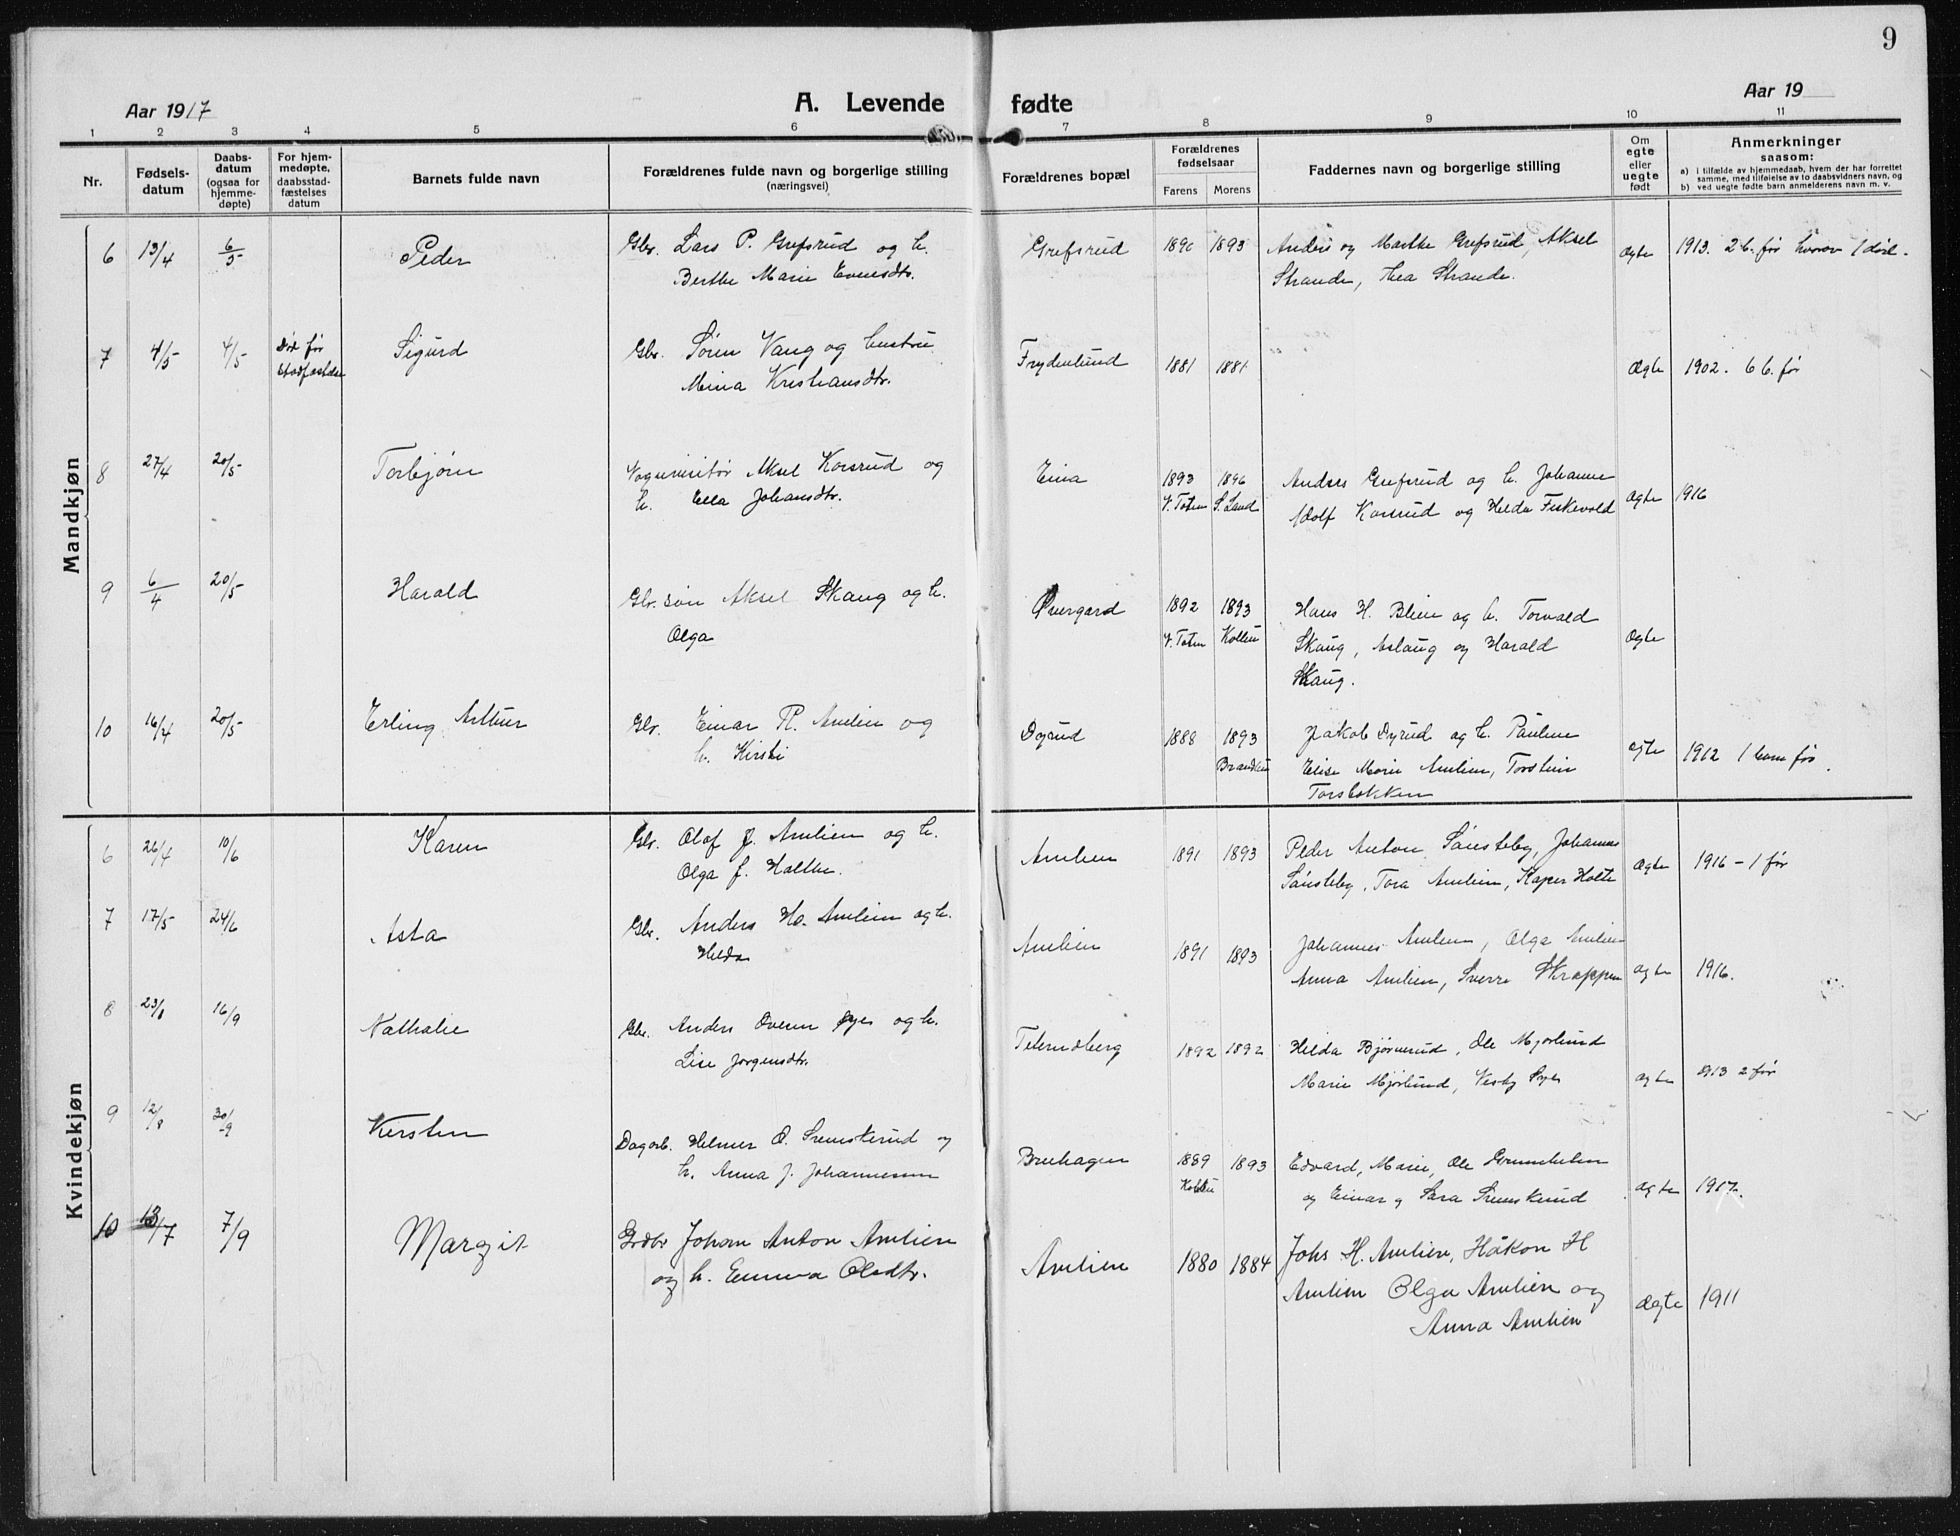 9
Aar 1917
A. Levende fødte
Aar 19
1 2 3 4 5 6 7 8 9 10 11
Nr.
Fødsels-
datum
Daabs-
datum
(ogsaa for
hjemme-
døpte)
For hjem-
medøpte,
daabsstad-
fæstelses
datum
Barnets fulde navn
Forældrenes fulde navn og borgerlige stilling
(næringsvei)
Forældrenes bopæl
Forældrenes
fødselsaar
Farens Morens
Faddernes navn og borgerlige stilling
Om
egte
eller
uegte
født
Anmerkninger
saasom:
a) i tilfælde av hjemmedaab, hvem der har forrettet
samme, med tilføielse av to daabsvidners navn, og
b) ved uegte fødte barn anmelderens navn m. v.
Mandkjøn
6 13/4 6/5 Peder Gbr. Lars P. Grefsrud og h. Grefsrud 1890 1893 Anders og Marthe Grefsrud, Aksel ægte 1913. 2 b. før hvorav 1 død.
Berthe Marie Evensdtr. Strande, Thea Strande.
7 4/5 4/5 Død før Sigurd Gbr. Søren Vang og hustru Frydenlund 1881 1881 ægte 1902. 6 b. før
stadfæstelse Mina Kristiansdtr.
8 27/4 20/5 Torbjørn Vognvisitør Aksel Korsrud og Eina 1893 1896 Anders Grefsrud og h. Johanne ægte 1916
h. Ella Johansdtr. V. Toten S. Land Adolf Korsrud og Helda Fiskevold
9 6/4 20/5 Harald Gbr. søn Aksel Skaug og h. Øvergard 1892 1893 Hans H. Blien og h. Torvald ægte
Olga V. Toten Kolbu Skaug, Aslaug og Harald
Skaug.
10 16/4 20/5 Erling Arthur Gbr. Einar R. Amlien og Dyrud 1888 1893 Jakob Dyrud og h. Pauline ægte 1912 1 barn før.
h. Kirsti Brandbu Elise Marie Amlien, Torstein
Torsbakken
Kvindekjøn
6 26/4 10/6 Karen Gbr. Olaf J. Amlien og h. Amlien 1891 1893 Peder Anton Sønsteby, Johannes ægte 1916 - 1 før
Olga J. Holthe. Sønsteby, Tora Amlien, Kaper Holte
7 17/5 24/6 Asta Gbr. Anders H. Amlien og h. Amlien 1891 1893 Johannes Amlien, Olga Amlien ægte 1916.
Helda Anna Amlien, Sverre Skrappen
8 23/8 16/9 Nathalie Gbr. Anders Øyes og h. 1892 1892 Hilda Bjørnerud, Ole Mjørlund ægte 1913 2 før
Lise Jørgensdtr. Marie Mjørlund,
9 12/8 30/9 Kirsten Dagarb. Helmer O. Sremskerud og Bruhagen 1889 1893 Edvard, Marie, Ole ægte 1917.
h. Anna J. Johannessen Kolbu og Einar og Sara Sremskerud
10 13/7 7/9 Margit Grdbr Johan Anton Amlien Amlien 1880 1884 Johs H. Amlien, Håkon H
og h. Emma Olsdtr. Amlien Olga Amlien og ægte 1911
Anna Amlien